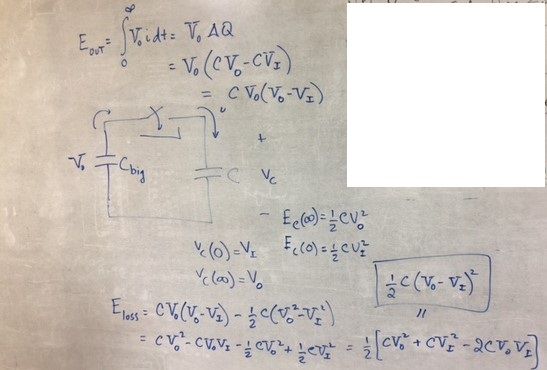 E_OUT = ∫₀^∞ V₀ i dt = V₀ ΔQ
= V₀ (CV₀ - CV_I)
= CV₀(V₀ - V_I)
+
V₀ C_big C V_c
-
E_c(∞) = ½ CV₀²
V_c(0) = V_I E_c(0) = ½ CV_I²
V_c(∞) = V₀
½ C (V₀ - V_I)²
E_loss = CV₀(V₀ - V_I) - ½ C(V₀² - V_I²) =
= CV₀² - CV₀V_I - ½ CV₀² + ½ CV_I² = ½ [CV₀² + CV_I² - 2CV₀V_I]